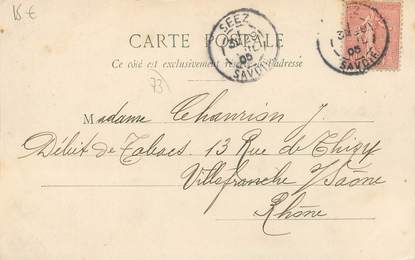 15 €
SEEZ
SAVOIE
05
SAVOIE
05
CARTE POSTALE
Ce côté est exclusivement réservé à l'adresse
73
Madame Chanrion J.
Débit de Tabacs. 13 Rue de Thizy
Villefranche s/Saône
Rhône